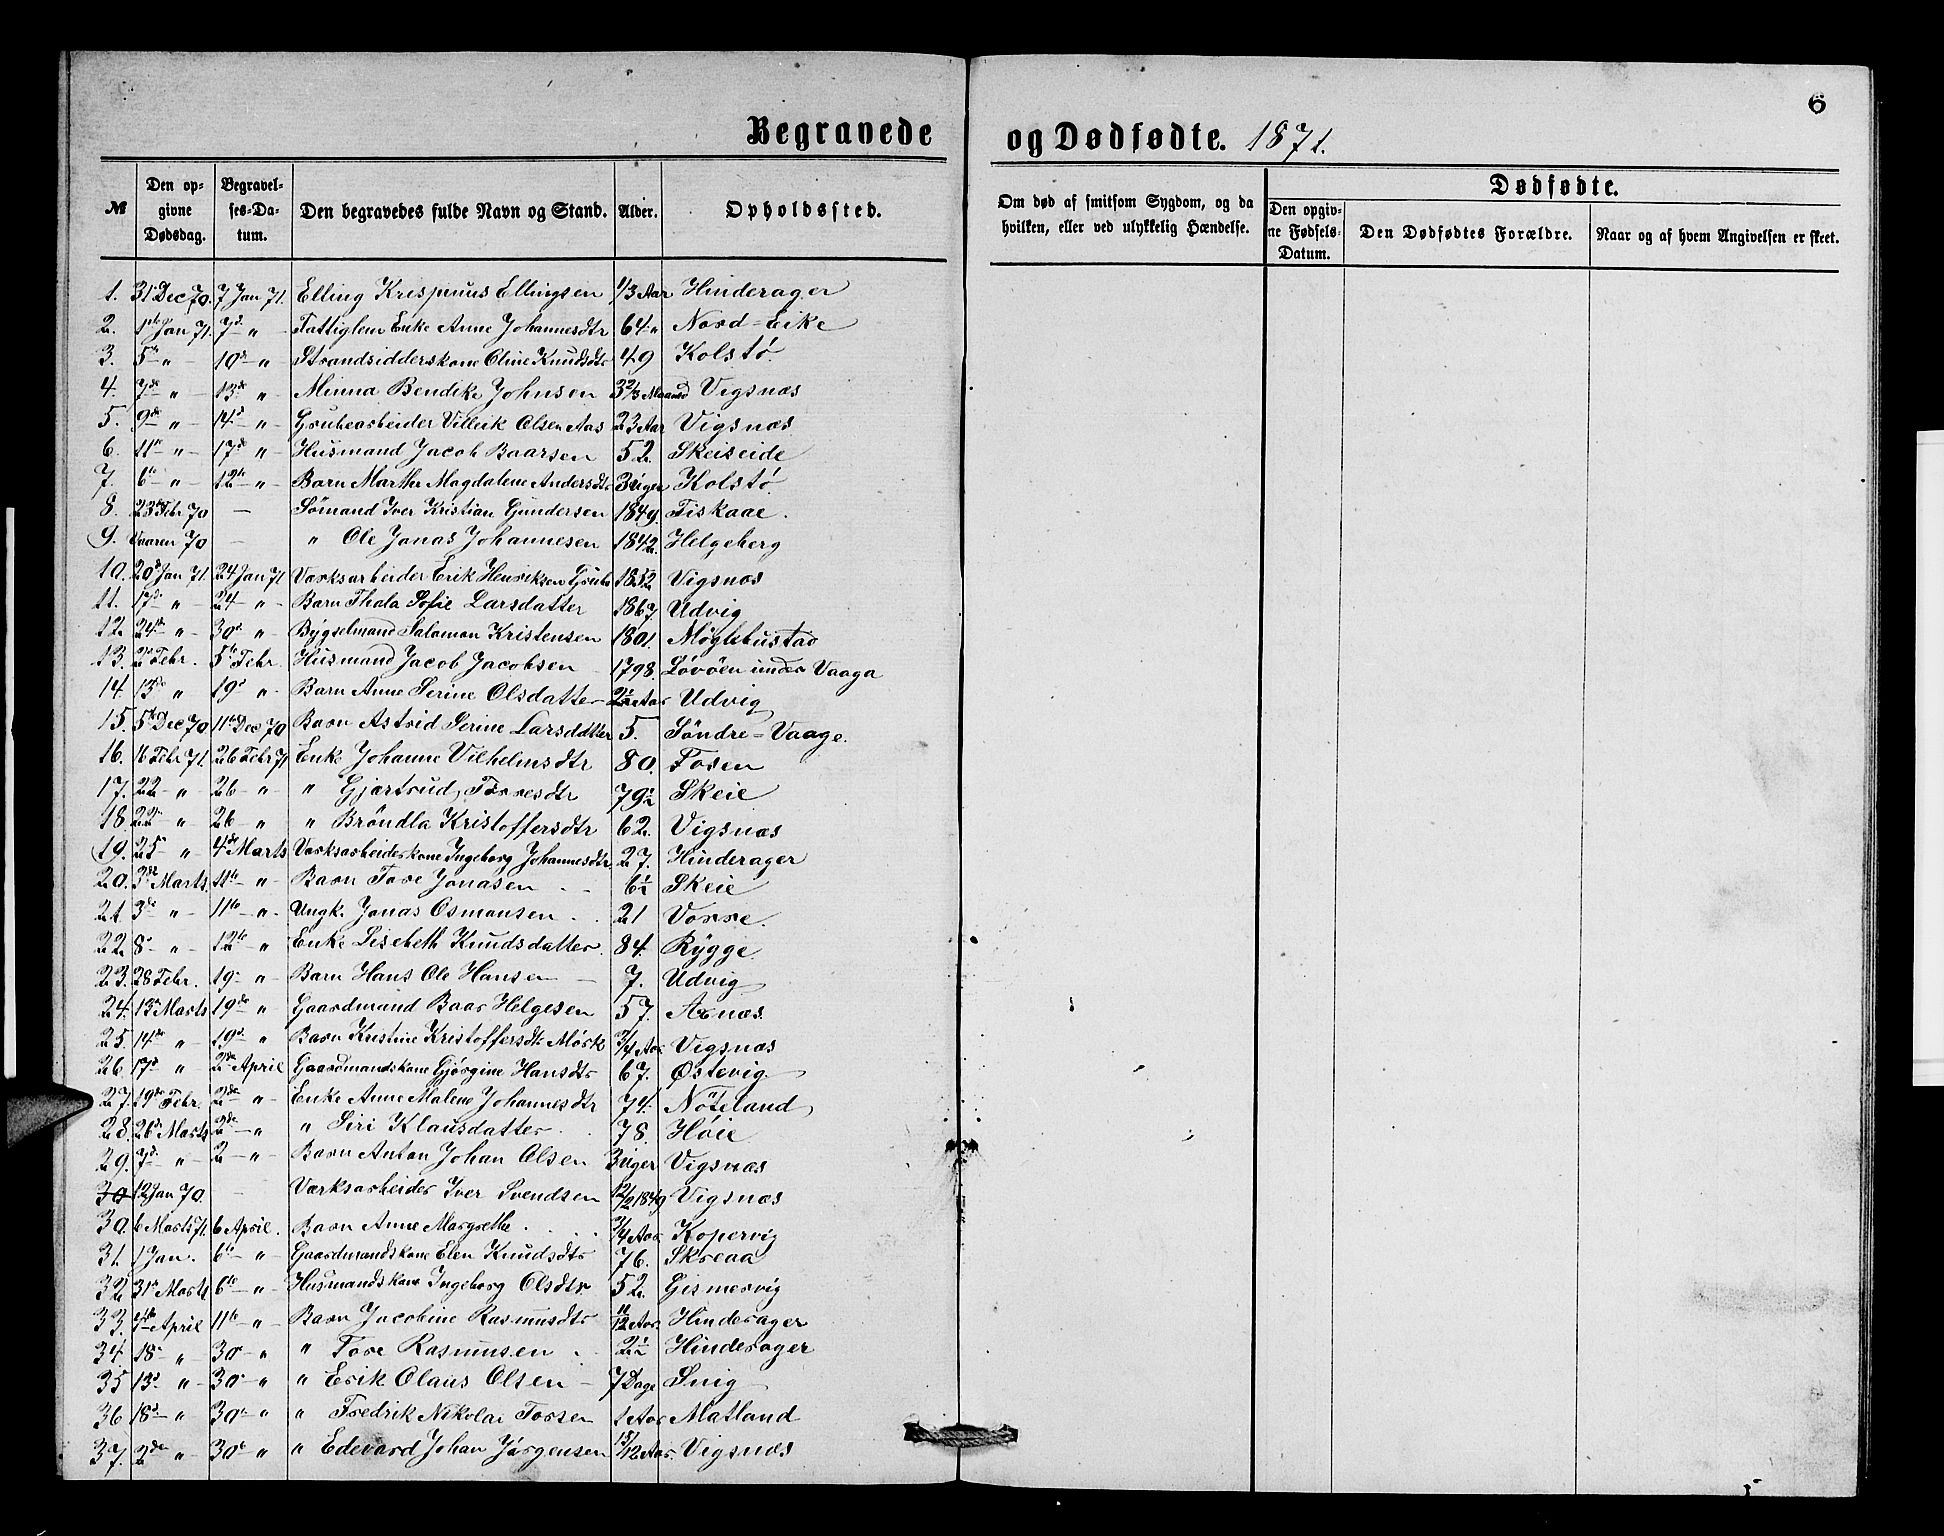 Begravede og Dødfødte. 1871.
6
№ Den opgivne Dødsdag. Begravelses-Datum. Den begravedes fulde Navn og Stand. Alder. Opholdssted. Om død af smitsom Sygdom, og da hvilken, eller ved ulykkelig Hændelse. Dødfødte. Den opgivne Fødsels-Datum. Den Dødfødtes Forældre. Naar og af hvem Angivelsen er skeet.
1. 31 Dec 70. 7 Jan 71. Elling Krispinus Ellingsen 1/3 Aar Hinderager
2. 1ste Jan 71. 7de " Fattiglem Enke Anne Johannesdtr 64 " Nord-Eike
3. 5te " 10de " Strandsidderskone Oline Knudsdtr 49 Kolstø
4. 7de " 13de " Minna Bendike Johnsen 3 2/3 Maaned Vigsnæs
5. 9de " 14d " Grubearbeider Olsen Aas 23 Aar Vigsnæs
6. 11te " 17de " Husmand Jacob Baarsen 52. Skeiseide
7. 6te " 12te " Barn Marthe Magdalene Andersdtr 3 Uger Kolstø
8. 23de Febr 70 — Sømand Iver Kristian Gundersen 1849. Fiskaae.
9. Vaaren 70 — " Ole Jonas Johannesen 1842. Helgeberg
10. 20de Jan 71. 24 Jan 71 Værksarbeider Erik Henriksen 1832 Vigsnæs
11. 17d " 24 " Barn Thala Sofie Larsdatter 1867. Udvig
12. 24de " 30d " Bygselmand Salomon Kristensen 1801.
13. 2d Febr. 5te Febr. Husmand Jacob Jacobsen 1798. Løvøen under Vaaga
14. 13de " 19d " Barn Anne Serine Olsdatter 2 1/2 Aar Udvig
15. 5te Dec 70 11te Dec 70 Barn Astrid Serine Larsdatter 5. Søndre-Vaage.
16. 16 Febr 71. 26 Febr 71 Enke Johanne Vilhelmsdtr 80. Fosen
17. 22 " 26 " " Gjertrud Torresdtr 79 1/2 Skeie
18. 22 " 26 " " Brøndla Kristoffersdtr 62. Vigsnæs
19. 25 " 4de Marts Værksarbeiderskone Ingeborg Johannesdtr 27. Hinderager
20. 3de Marts. 11te " Barn Tore Jonasen 6 1/2 Skeie
21. 3de " 11te " Ungk. Jonas Osmonsen 21 Vorre.
22. 8 " 12te " Enke Lisebeth Knudsdatter. 84. Rygge
23. 28 Febr. 19 " Barn Hans Ole Hansen 7. Udvig
24. 13de Marts 19de " Gaardmand Baar Helgesen 57. Arnæs.
25. 14de " 19d " Barn Kristine Kristoffersdtr Mørk 3/4 Aar. Vigsnæs
26. 17d " 2de April Gaardmandskone Gjørgine Hansdtr 67. Østevig
27. 19de Febr. 2de " Enke Anne Malene Johannesdtr 74. Nøteland
28. 26de Marts 2de " " Siri Klausdatter 78. Høie
29. 7d " 2 " Barn Anton Johan Olsen 3 Uger Vigsnæs
30 12 Jan 70. Værksarbeider Iver Svendsen 12/2 1849 Vigsnæs
30. 6 Marts 71. 6 April. Barn Anne Margrethe 3/4 Aar. Kopervig
31. 1 Jan. 6te " Gaardmandskone Elen Knudsdtr 76. Skreaa
32. 31te Marts 6te " Husmandskone Ingeborg Olsdtr 52. Gismervig
33. April 11te " Barn Jacobine Rasmusdtr 11/12 Aar. Hinderager
34. 18 " 30 " " Tore Rasmusen 2 1/2 Hinderager
35 13d " 30 " " Erik Olaus Olsen 7 Dage Snig
36 18d " 30 " " Fredrik Nikolai Torsen 1 Aar Matland
37. 2den " 30te " " Edevard Johan Jørgensen 15/12 Aar. Vigsnæs